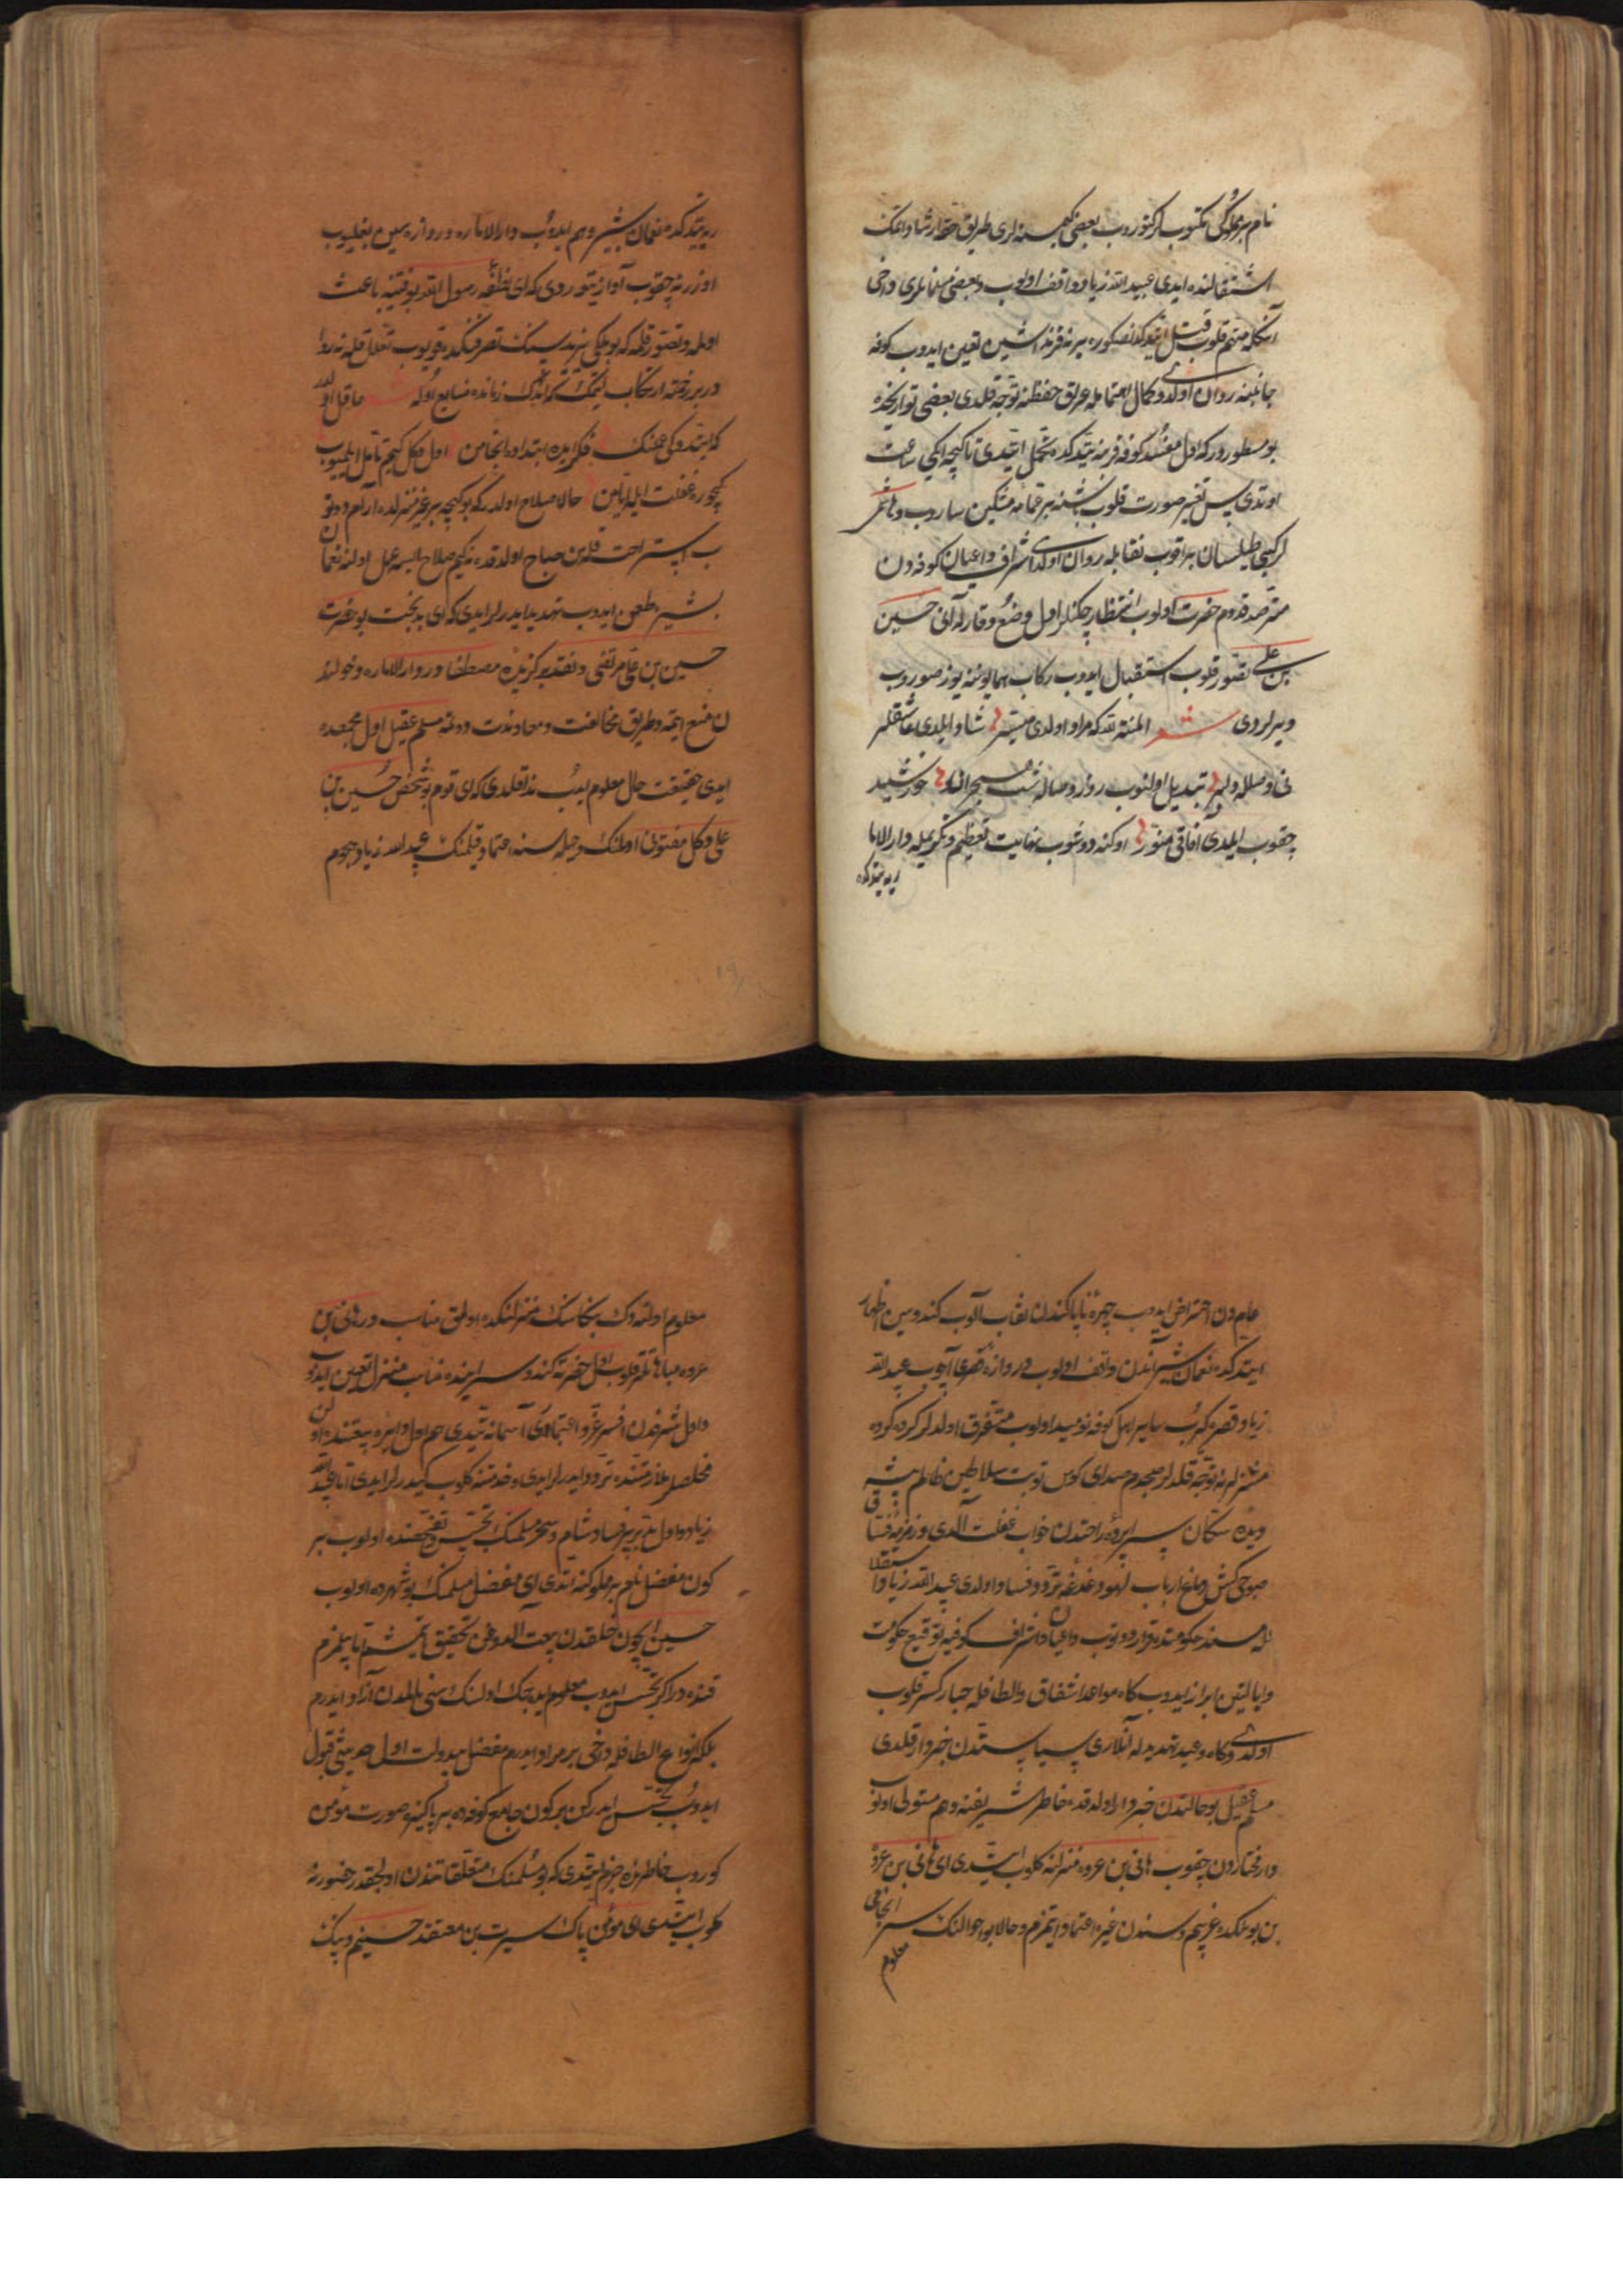 نام بر مملوكی مكتوب كتوروب بعضی كیمسنه لری طریق حقه ارشاد ایتمك
اشتغالنده ایدی عبید الله زیاد واقف اولوب و بعضی مسلمانلری داخی
آنكله متهم قلوب قتل ایتدكدنصكره یرنه فرزنداشین تعیین ایدوب كوفه
جانبنه روان اولدی و كمال اهتمامله عراق حفظنه توجه قلدی بعضی تواریخده
بو مسطوردر كه اول مفسد كوفه قربنه یتدكده تحمل ایتدی تا كیجه ایكی ساعت
اوتدی پس تغییر صورت قلوب باشنه بر عمامه مشكین صاروب و هاشمی
لر كیبی طیلسان براقوب نقابله روان اولدی اشراف و اعیان كوفه دن
مترصد قدوم حضرت اولوب انتظار چكنلر اول وضع و وقارله آنی حسین
بن علی تصور قلوب استقبال ایدوب ركاب همایوننه یوز صوروب
دیرلردی شعر المنة لله كه مراد اولدی میسر شاد ایلدی عاشقلر
نی وصلله دلبر تبدیل اولنوب روز وصاله شب هجران خورشید
چقوب ایلدی آفاقی منور اوكنه دوشوب نهایت تعظیم و تكریمله دار الاما
ریه یتدكده
ریه یتدكده نعمان بشیر وهم ایدوب دار الاماره دروازه سین بغلیوب
اوزرینه چقوب آواز یتوردی كه ای نطفه رسول الله بو فتنیه باعث
اولمه و تصور قلمه كه بو ملكی یزید سینك تصرفنكده قویوب تغافل قلمه نه روا
در بر زحمته ارتكاب ایتمك كه اندك زمانده ضایع اوله شعر عاقل اولدر
كه ایتدوكی عملنك فكر ایده ابتداده انجامن اول دكل كیم تأمل ایلمیوب
كچوره غفلت ایله ایامن حالا صلاح اولدر كه بو كیجه بر غیر منزلده آرام دوتو
ب استراحت قله سن صباح اولدقده نه كیم صلاح ایسه عمل اولنه نعمان
بشیره طعن ایدوب تهدید ایدرلر ایدی كه ای بدبخت بو حضرت
حسین بن علی مرتضی و نقد بركزیده مصطفا در دار الاماره دخولند
ن منع ایتمه و طریق مخالفت و معاندت دوتمه مسلم عقیل اول مجمعده
ایدی حقیقت حال معلوم ایدوب ندا قلدی كه ای قوم بو شخص حسین بن
علی دكل مفتون اولمنك و حیله سنه اعتماد قلمنك عبید الله زیاد هجوم
عام دن احتراض ایدوب چهره ناپاكندن نقاب آلوب كندوسین اظهار
ایتدكده نعمان بشیر آندن واقف اولوب دروازه قصری آچوب عبید الله
زیاد قصره كیروب سایر اهل كوفه نومید اولوب متفرق اولدیلر كروه كروه
منزللرینه توجه قلدیلر صبحدم صدای كوس نوبت سلاطین ظالم پیشه
دیده سكان سراپرده راحتدن خواب غفلت آلدی و زمزمه فساق
صبوحی كش دماغ ارباب لهو دغدغه تردد و فساد اولدی عبید الله زیاد استقلا
لله مسند حكومتده قرار دوتوب و اعیان و اشراف كوفیه توقیع حكومت
و ایالتین ابراز ایدوب كاه مواعد اشفاق و الطافله جبار كسر قلوب
اولدی و كاه وعید تهدیدله آنلاری سیاستندن خبردار قلدی
مسلم عقیل بو حالتدن خبردار اولدقده خاطر شریفنه وهم مستولی اولوب
دار مختاردن چقوب هانی بن عروه منزلنه كلوب ایتدی ای هانی بن عروه
بن بو ملكده غریبم و سندن غیره اعتماد ایتمزم و حالا بو احوالنك سر انجامی
معلوم
معلوم اولنه دك بكا سنك منزلنكده اولمق مناسب در هانی بن
عروه مباهاتلر قلوب اول حضرته كندو سراینده مناسب منزل تعیین ایدوب
و اول شرفدن افسر عز و اعتباری آسمانه یتدی هم اول دایره بیعتنده اولن
مخلصلر ملازمتنده تردد ایدرلر ایدی و خدمتنه كلوب كیدرلر ایدی اما عبید الله
زیاد و اول تدبیر فساد شام و سحر مسلمك تجسس و تفحصنده اولوب بر
كون مفضل نام بر مملوكنه ایتدی ای مفضل مسلمك بو شهرده اولوب
حسین ایچون خلقدن بیعت آلدوغن تحقیق ایتمشم اما بیلمزم
قنده در اكر تجسس ایدوب معلوم ایده جك اولسنك سنی مالمدن آزاد ایدرم
بلكه انواع الطافله داخی بر مراد ایدرم مفضل بیدولت اول حدیثی قبول
ایدوب تجسس ایدركن بر كون جامع كوفه ده بر پاكیزه صورت مؤمن
كوروب خاطرنده جزم ایتدی كه بو مسلمنك متعلقاتندن اولیجقدر حضورنه
كلوب ایتدی ای مؤمن پاك سیرت بن معتقد حسینم و بیك